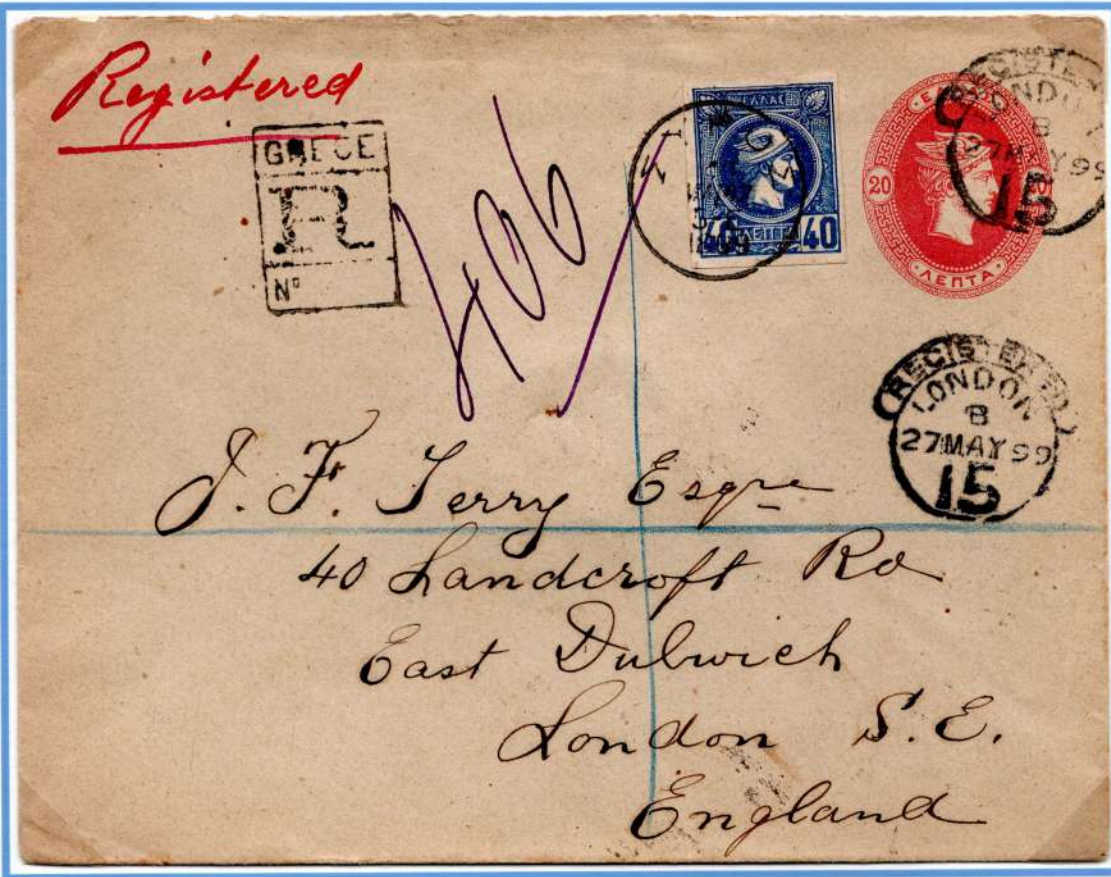 Registered
GREECE
R
Nº
406
ΕΛΛΑΣ
40 ΛΕΠΤΑ 40
20
ΛΕΠΤΑ
LONDON
8
27 MAY 99
15
REGISTERED
LONDON
8
27 MAY 99
15
J. F. Terry Esqre
40 Landcroft Rd
East Dulwich
London S. E.
England